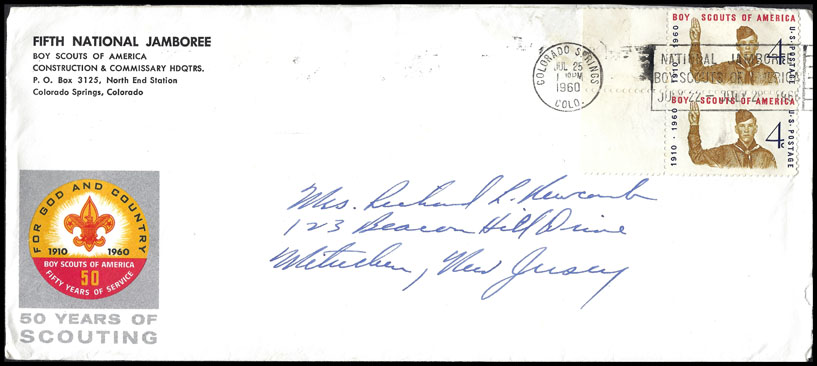 FIFTH NATIONAL JAMBOREE
BOY SCOUTS OF AMERICA
CONSTRUCTION & COMMISSARY HDQTRS.
P. O. Box 3125, North End Station
Colorado Springs, Colorado
COLORADO SPRINGS
JUL 25
PM
1960
COLO.
NATIONAL JAMBOREE
BOY SCOUTS OF AMERICA
JULY 22 - JULY 28, 1960
BOY SCOUTS OF AMERICA
1910 · 1960
4c
U·S·POSTAGE
BOY SCOUTS OF AMERICA
1910 · 1960
4c
U·S·POSTAGE
Mrs. Richard L. Newcomb
123 Beacon Hill Drive
Metuchen, New Jersey
FOR GOD AND COUNTRY
1910 1960
BOY SCOUTS OF AMERICA
50
FIFTY YEARS OF SERVICE
50 YEARS OF
SCOUTING